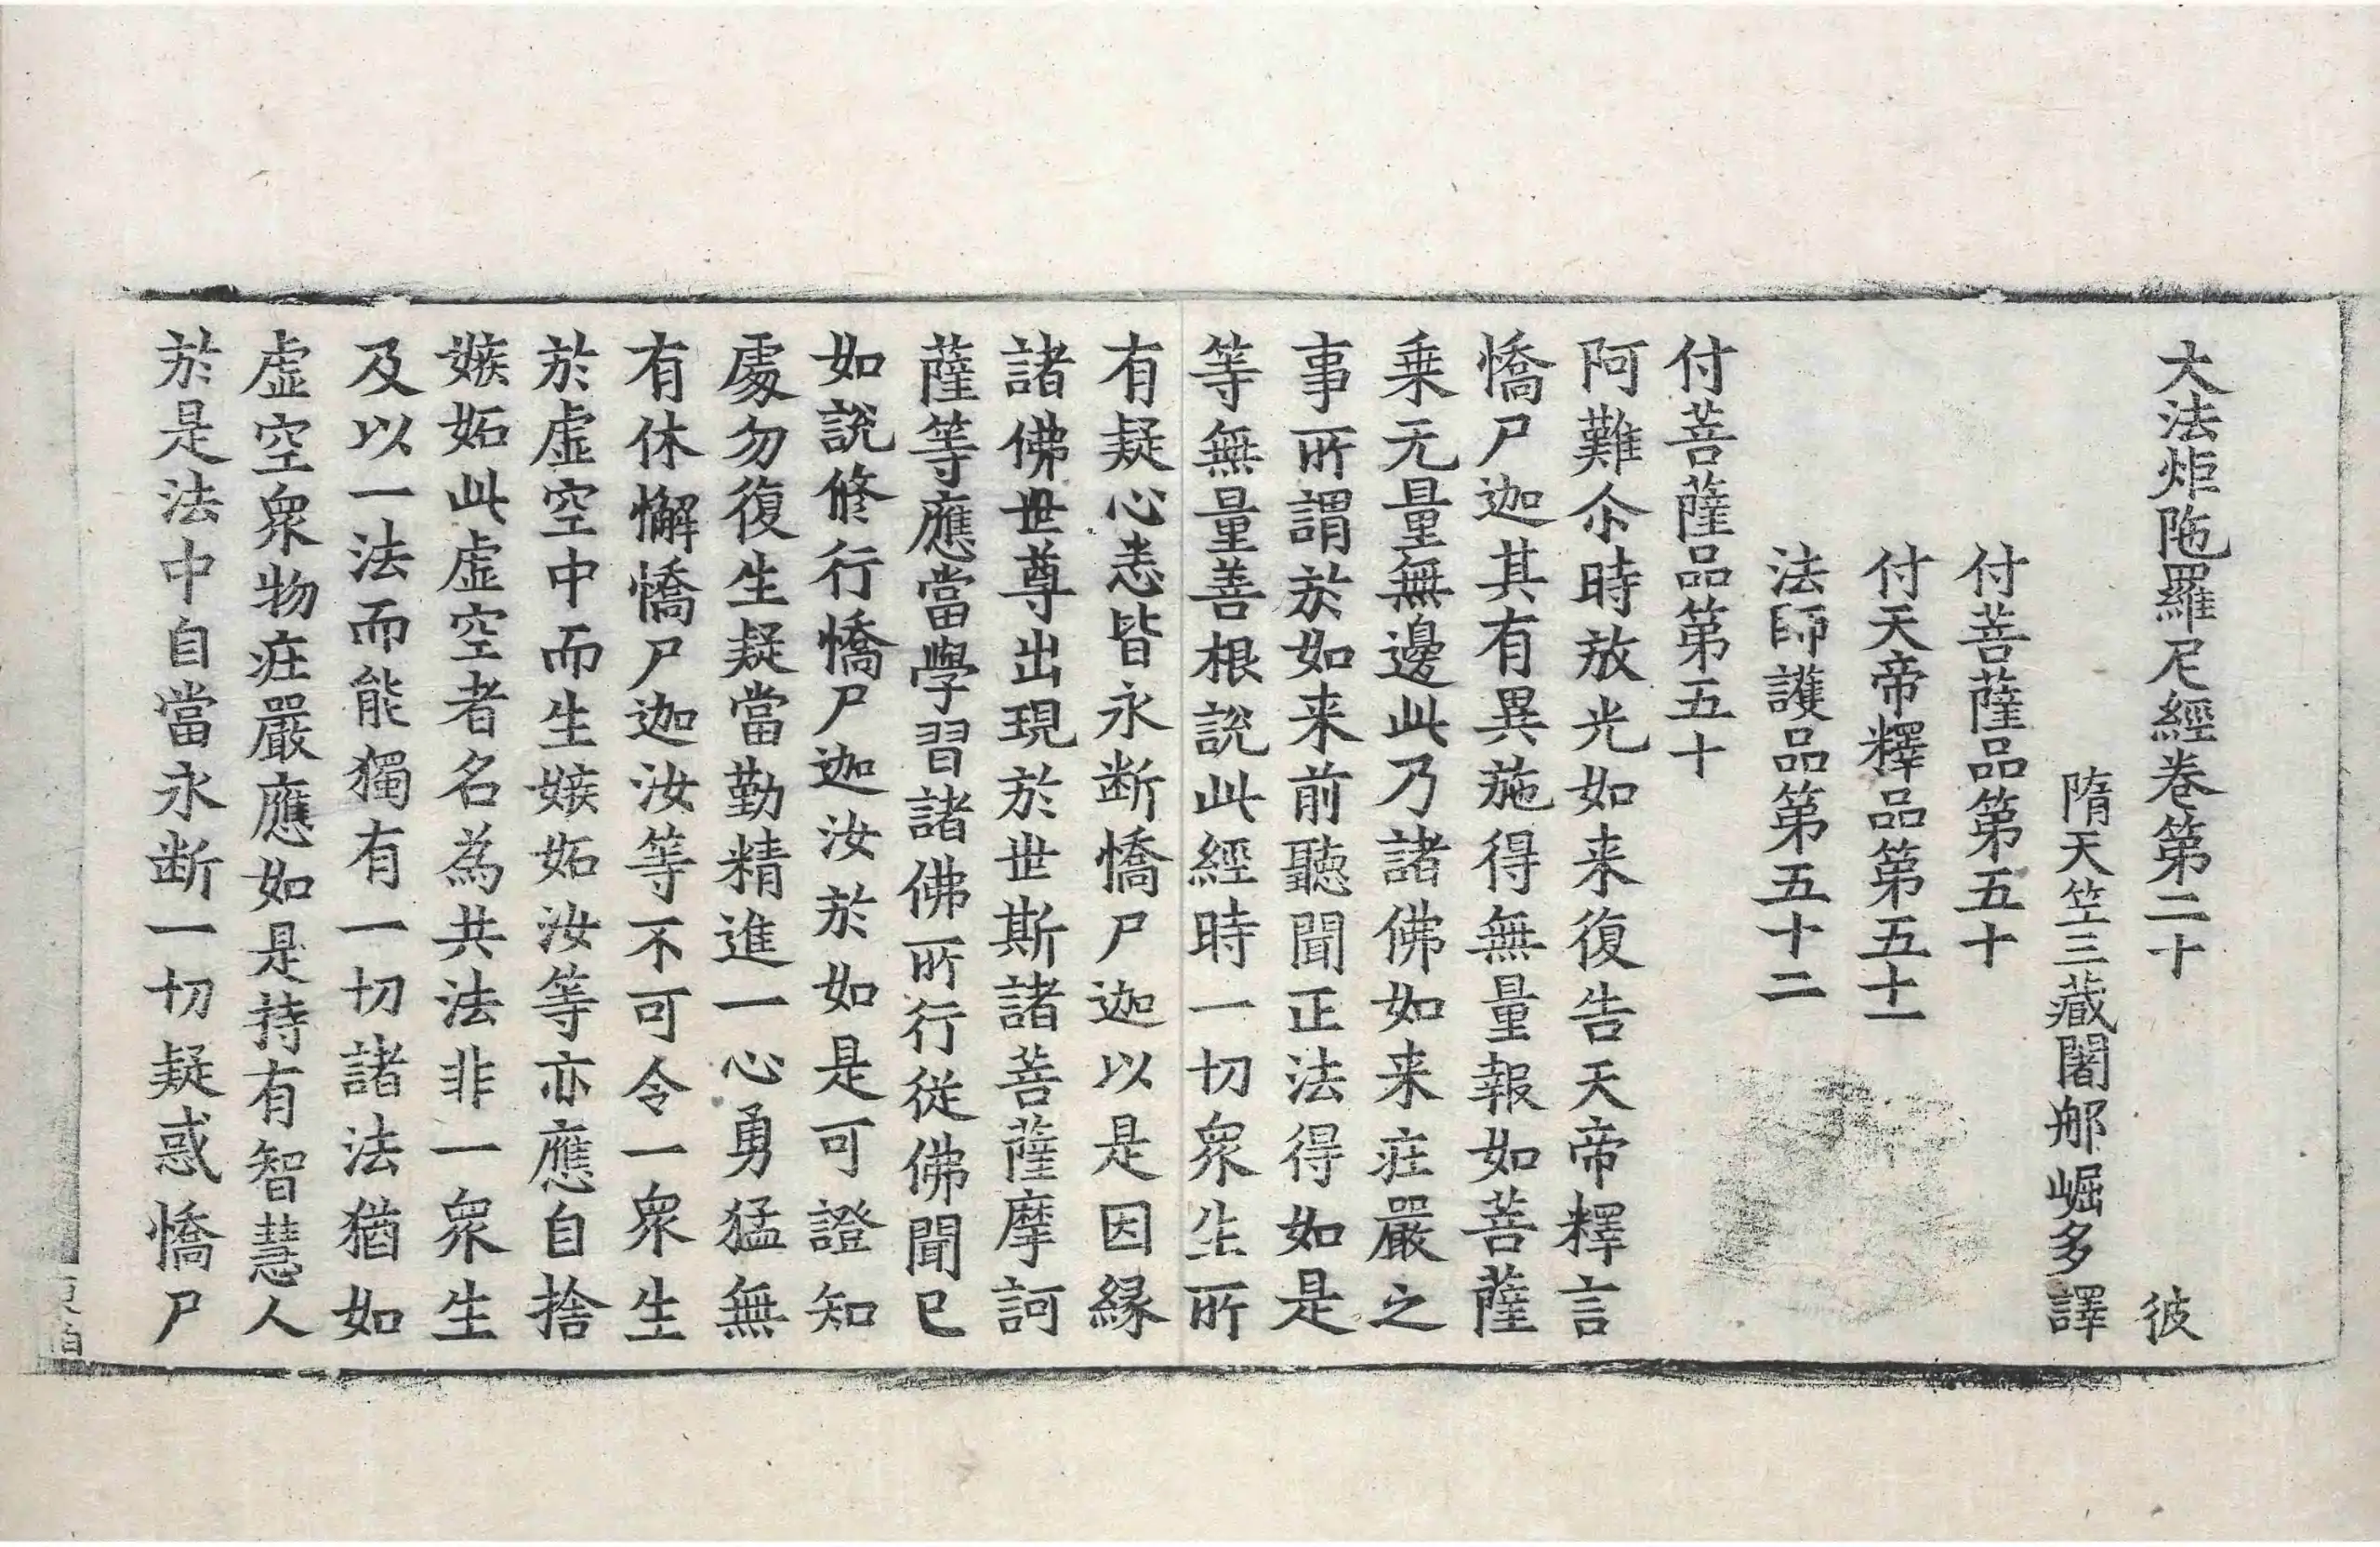 大法炬陁羅尼經卷第二十 彼
隋天笁三藏闍那崛多譯
付菩薩品第五十
付天帝釋品第五十一
法師護品第五十二
付菩薩品第五十
阿難尒時放光如来復告天帝釋言
憍尸迦其有異施得無量報如菩薩
乗无量無邊此乃諸佛如来庄嚴之
事所謂於如来前聽聞正法得如是
等無量善根說此經時一切衆生所
有疑心悉皆永断憍尸迦以是因縁
諸佛世尊出現於世斯諸菩薩摩訶
薩等應當學習諸佛所行従佛聞已
如說修行憍尸迦汝於如是可證知
處勿復生疑當勤精進一心勇猛無
有休懈憍尸迦汝等不可令一衆生
於虛空中而生嫉妬汝等亦應自捨
嫉妬此虛空者名為共法非一衆生
及以一法而能獨有一切諸法猶如
虛空衆物庄嚴應如是持有智慧人
於是法中自當永断一切疑惑憍尸